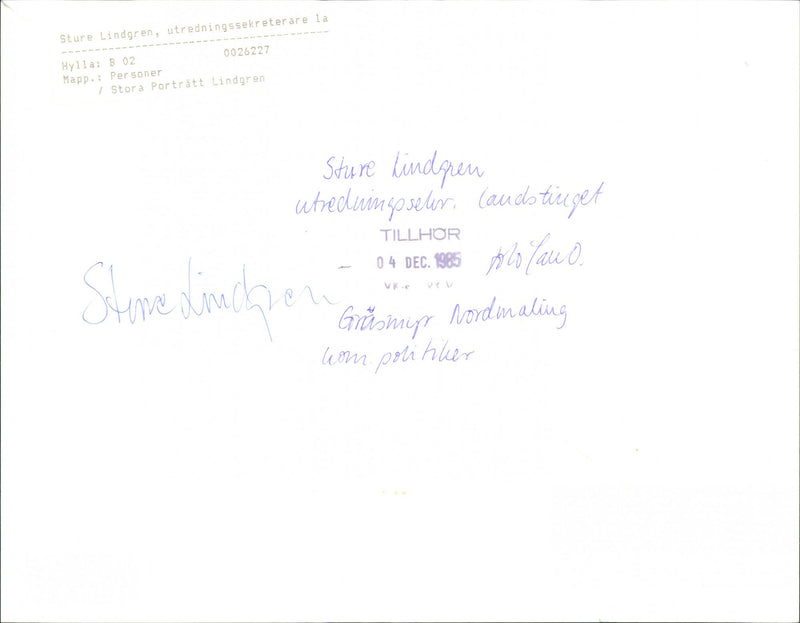 Sture Lindgren, utredningssekreterare la
Hylla: B 02 0026227
Mapp.: Personer
/ Stora Porträtt Lindgren
Sture Lindgren
utredningssekr. landstinget
TILLHÖR
04 DEC. 1985
Sture Lindgren
Gräsmyr Nordmaling
kom. politiker